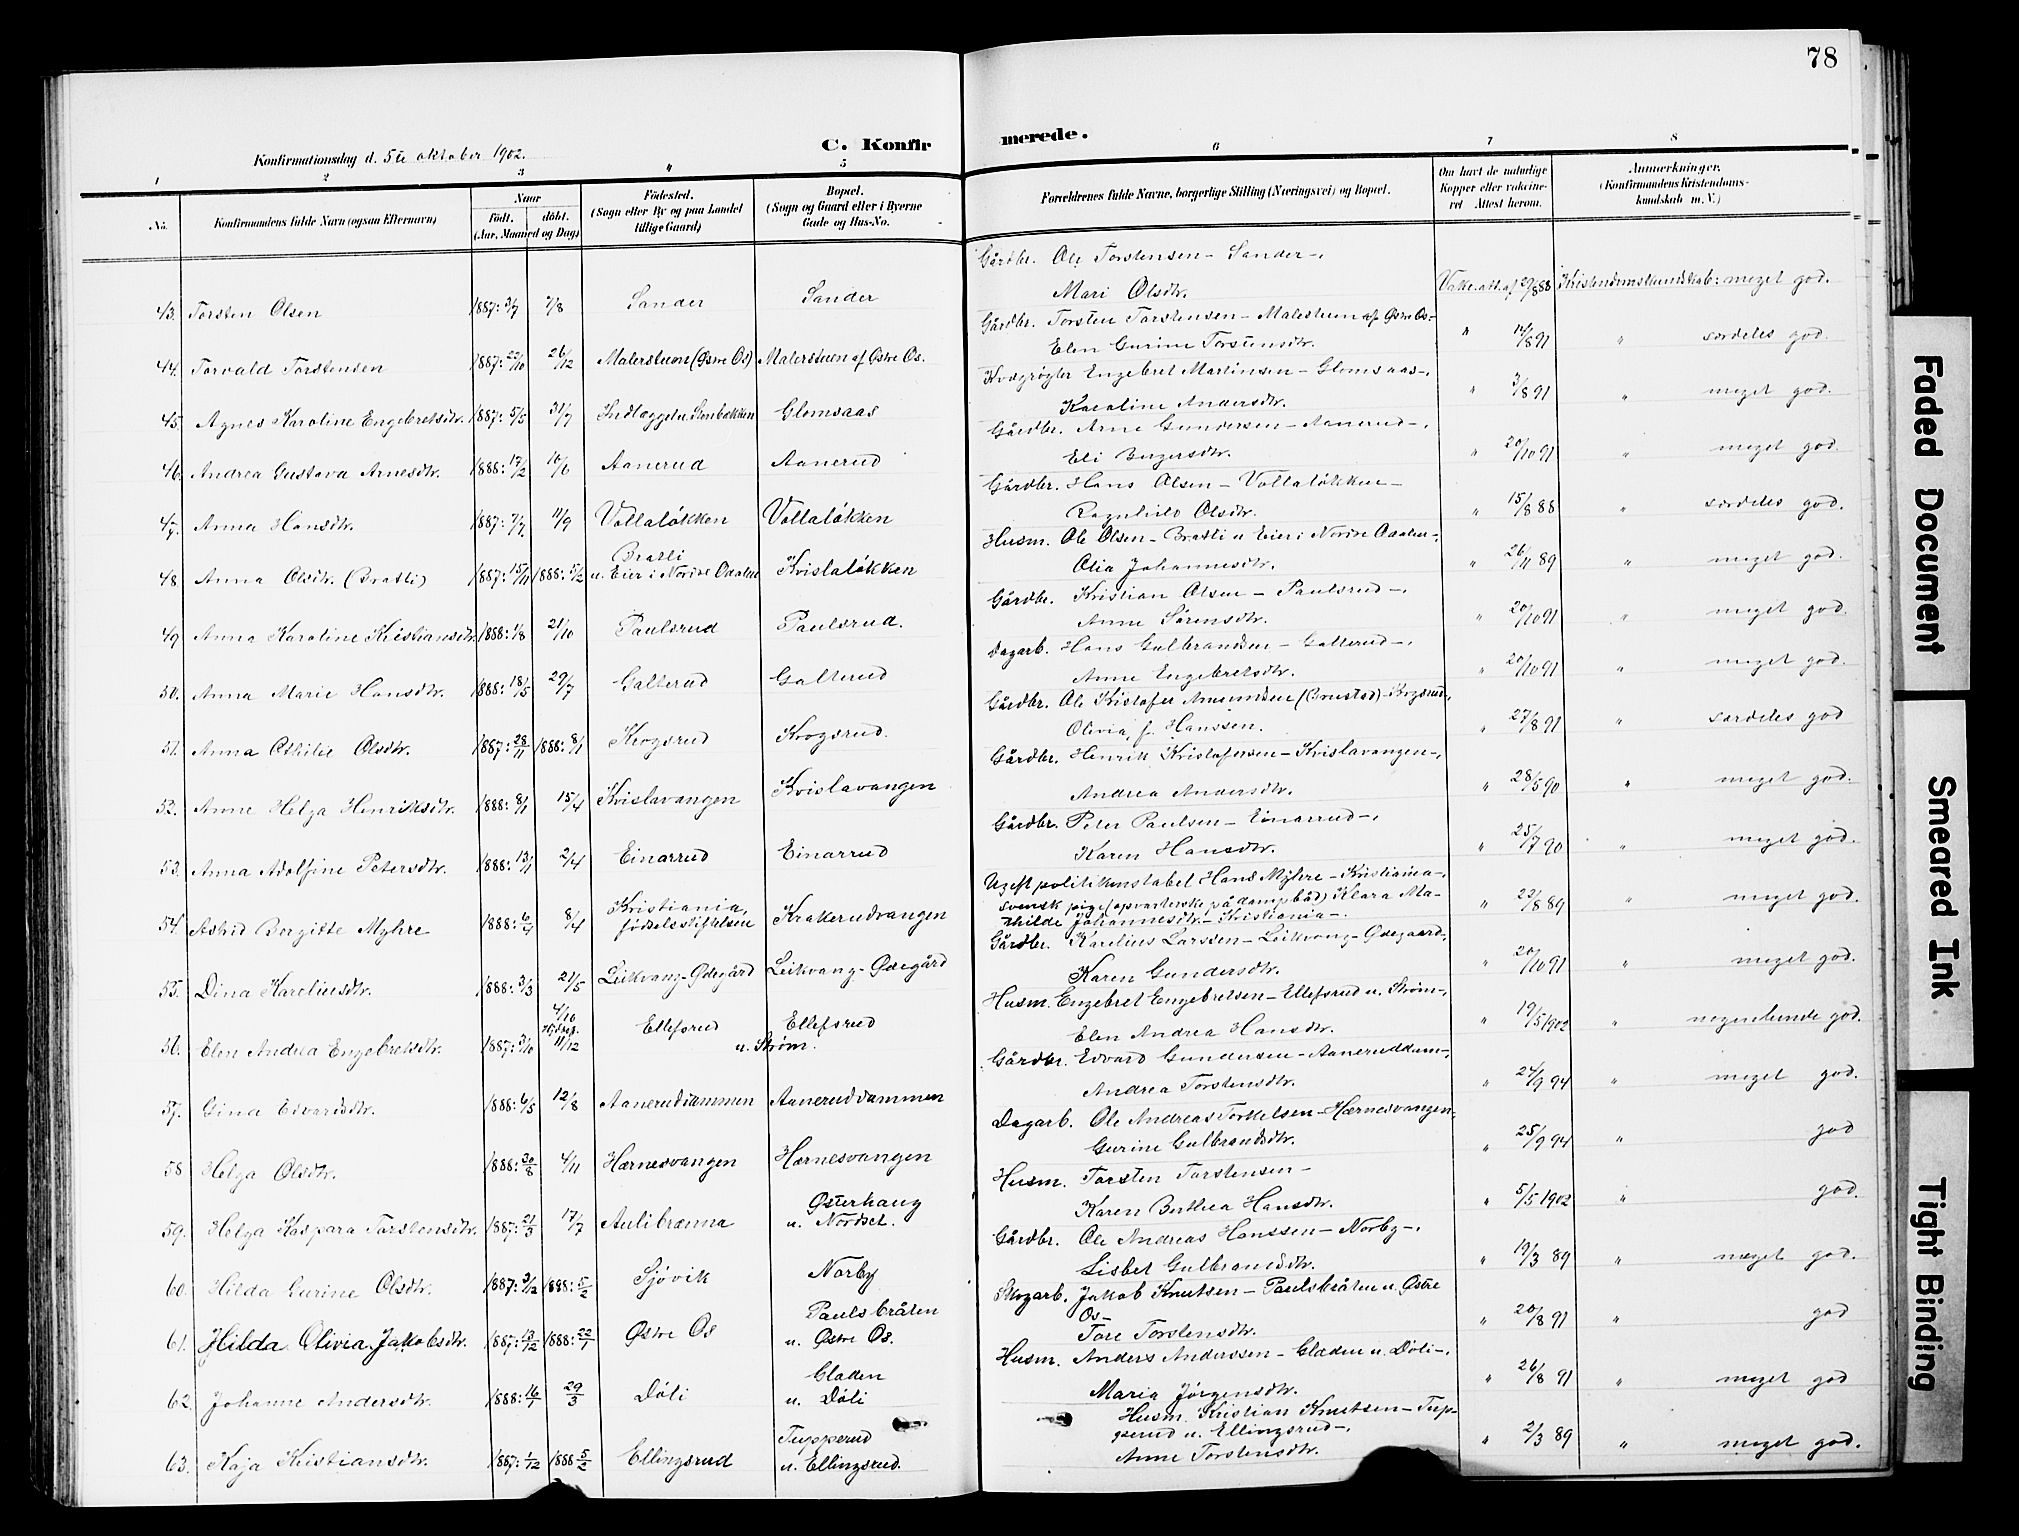 78
C. Konfir
merede.
Konfirmationsdag d. 5te oktober 1902.
1 2 3 4 5 6 7 8
No. Konfirmandens fulde Navn (ogsaa Efternavn) Naar født. døbt. (Aar, Maaned og Dag) Fødested. (Sogn eller By og paa Landet tillige Gaard) Bopæl. (Sogn og Gaard eller i Byerne Gade og Hus-No. Forældrenes fulde Navne, borgerlige Stilling (Næringsvei) og Bopæl. Om havt de naturlige Kopper eller vaccineret Attest herom. Anmerkninger. (Konfirmandens Kristendomskundskab m. V.)
Gårdbr. Ole Torstensen - Sander -,
43. Torsten Olsen 1887: 3/7 7/8 Sander Sander Mari Olsdtr. Vakc. att. af 29/8 88 Kristendomskundskab: meget god.
Gårdbr. Torsten Torstensen - Malerstuen af Østre Os -
44. Torvald Torstensen 1887: 22/10 26/12 Malerstuen (Østre Os) Malerstuen af Østre Os. Elen Gurine " 14/8 91 " særdeles god.
Engebret Martinsen - Glomsaas -,
45. Agnes Karoline Engebretsdtr. 1887: 5/5 31/7 Glomsaas Karoline Andersdtr. " 3/8 91 " meget god.
Gårdbr. Arne Gundersen - Aanerud -,
46. Andrea Gustava Arnesdtr. 1888: 17/2 10/6 Aanerud Aanerud Eli Birgersdtr. " 20/10 91 " meget god.
Gårdbr. Hans Olsen - Vollaløkken -
47. Anna Hansdtr. 1887: 7/7 11/9 Vollaløkken Vollaløkken Ragnhild Olsdtr. " 15/8 88 " særdeles god.
Husm. Ole Olsen - Bratli u. Eier i Nordre Odalen -,
48. Anna Olsdtr. (Bratli) 1887: 15/11 1888: 5/2 Bratli u. Eier i Nordre Odalen Kvislaløkken Olia Johannesdtr. " 26/11 89 " meget god.
Gårdbr. Kristian Olsen - Paulsrud -,
49 Anna Karoline Kristiansdtr. 1888: 1/8 21/10 Paulsrud Paulsrud. Anne Sørensdtr. " 20/10 91 " meget god.
Dagarb. Hans Gulbrandsen - Galterud -,
50. Anna Marie Hansdtr. 1888: 18/5 29/7 Galterud Galterud Anne Engebretsdtr. " 20/10 91 " meget god.
Gårdbr. Ole Kristofer Amundsen (Brustad) - Krogsrud -,
51. Anna Othilie Olsdtr. 1887: 28/11 1888: 8/1 Krogsrud Krogsrud. Olivia, f. Hanssen. " 27/8 91 " særdeles god
Gårdbr. Henrik Kristofersen - Kvislavangen -,
52. Anne Helga Henriksdtr. 1888: 8/1 15/4 Kvislavangen Kvislavangen Andrea Andersdtr. " 28/5 90 " meget god.
Gårdbr. Peter Paulsen - Einarrud -,
53. Anna Adolfine Petersdtr. 1888: 13/1 2/4 Einarrud Einarrud Karen Hansdtr. " 25/7 90 " meget god.
Ugift politikonstabel Hans Myhre - Kristiania -,
svensk pige (opvarterske på dampbåd) Klara Ma-
54. Astrid Bergitte Myhre 1888: 6/4 8/4 Kristiania, fødselsstiftelsen Krakerudvangen thilde Johannesdtr. - Kristiania -. " 22/8 89 " meget god.
Gårdbr. Karelius Larssen - Leikvang-Ødegaard,
55. Dina Kareliusdtr. 1888: 3/3 21/5 Leikvang-Ødegård Leikvang-Ødegård Karen Gundersdtr. " 20/10 91 " meget god.
Husm. Engebret Engebretsen - Ellefsrud u. Strøm -,
56. Elen Andrea Engebretsdtr. 1887: 3/10 4/10 11/12 Ellefsrud Ellefsrud u. Strøm. Elen Andrea Hansdtr. " 19/5 1902 " nogenlunde god.
Gårdbr. Edvard Gundersen - Aaneruddam -,
57. Gina Edvardsdtr. 1888: 6/5 12/8 Aaneruddammen Aaneruddammen Andrea Torstensdtr. " 24/9 94 " meget god.
Dagarb. Ole Andreas Torkelsen - Hærnesvangen -
58 Helga Olsdtr. 1888: 30/8 4/11 Hærnesvangen Hærnesvangen Gurine Gulbrandsdtr. " 25/9 94 " god
Husm. Torsten Torstensen -
59. Helga Kaspara Torstensdtr. 1887: 21/3 17/7 Aulibrænna Østerhaug u. Nordset. Karen Berthea Hansdtr. " 5/5 1902 " god.
Gårdbr. Ole Andreas Hanssen - Norby -,
60. Hilda Gurine Olsdtr. 1887: 3/12 1888: 5/2 Sjøvik Norby Lisbet Gulbrandsdtr. " 19/3 89 " meget god.
Skogarb. Jakob Knutsen - Paulsbråten u. Østre
Os -
61. Hilda Olivia Jakobsdtr. 1887: 13/12 1888: 22/1 Østre Os Paulsbråten u. Østre Os. Tore Torstensdtr. " 20/8 91 " god
Husm. Anders Anderssen - Gladen u. Døli -,
62. Johanne Andersdtr. 1888: 16/1 29/3 Døli Gladen u. Døli Maria Jørgensdtr. " 26/8 91 " meget god
Husm. Kristian Knutsen - Tup-
perud u. Ellingsrud -,
63. Kaja Kristiansdtr. 1887: 1/12 1888 5/2 Ellingsrud Tupperud u. Ellingsrud. Anne Torstensdtr. " 2/3 89 " meget god.
Faded Document
Smeared Ink
Tight Binding